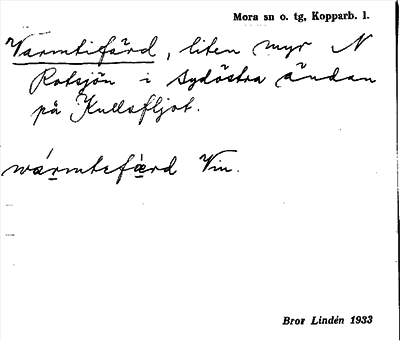 Mora sn o. tg, Kopparb. l.
Varmtifärd, liten myr N
Rotsjön i sydöstra ändan
på Kullsfljot.
wármtefǽrd Vin.
Bror Lindén 1933